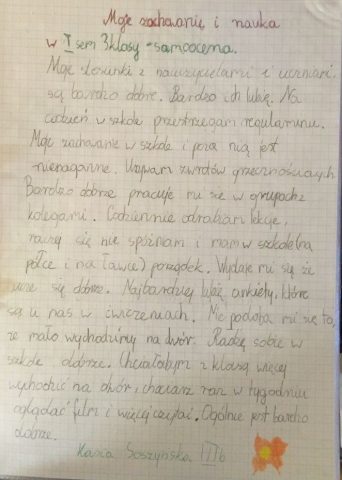 Moje zachowanie i nauka
w I sem 3 klasy - samoocena.
Moje stosunki z nauczycielami i uczniami
są bardzo dobre. Bardzo ich lubię. Na
codzień w szkole przestrzegam regulaminu.
Moje zachowanie w szkole i poza nią jest
nienaganne. Używam zwrotów grzecznościowych
Bardzo dobrze pracuje mi się w grupach z
kolegami. Codziennie odrabiam lekcje,
raczej się nie spóźniam i mam w szkolelną
półce i na ławce) porządek. Wydaje mi się że
uczę się dobrze. Najbardziej lubię ankiety, które
są u nas w ćwiczeniach. Nie podoba mi się to,
że mało wychodzimy na dwór. Radzę sobie w
szkole dobrze. Chciałabym z klasą więcej
wychodzić na dwór, chociarz raz w tygodniu
oglądać film i więcej czytać. Ogólnie jest bardzo
dobrze.
Kasia Soszyńska III b